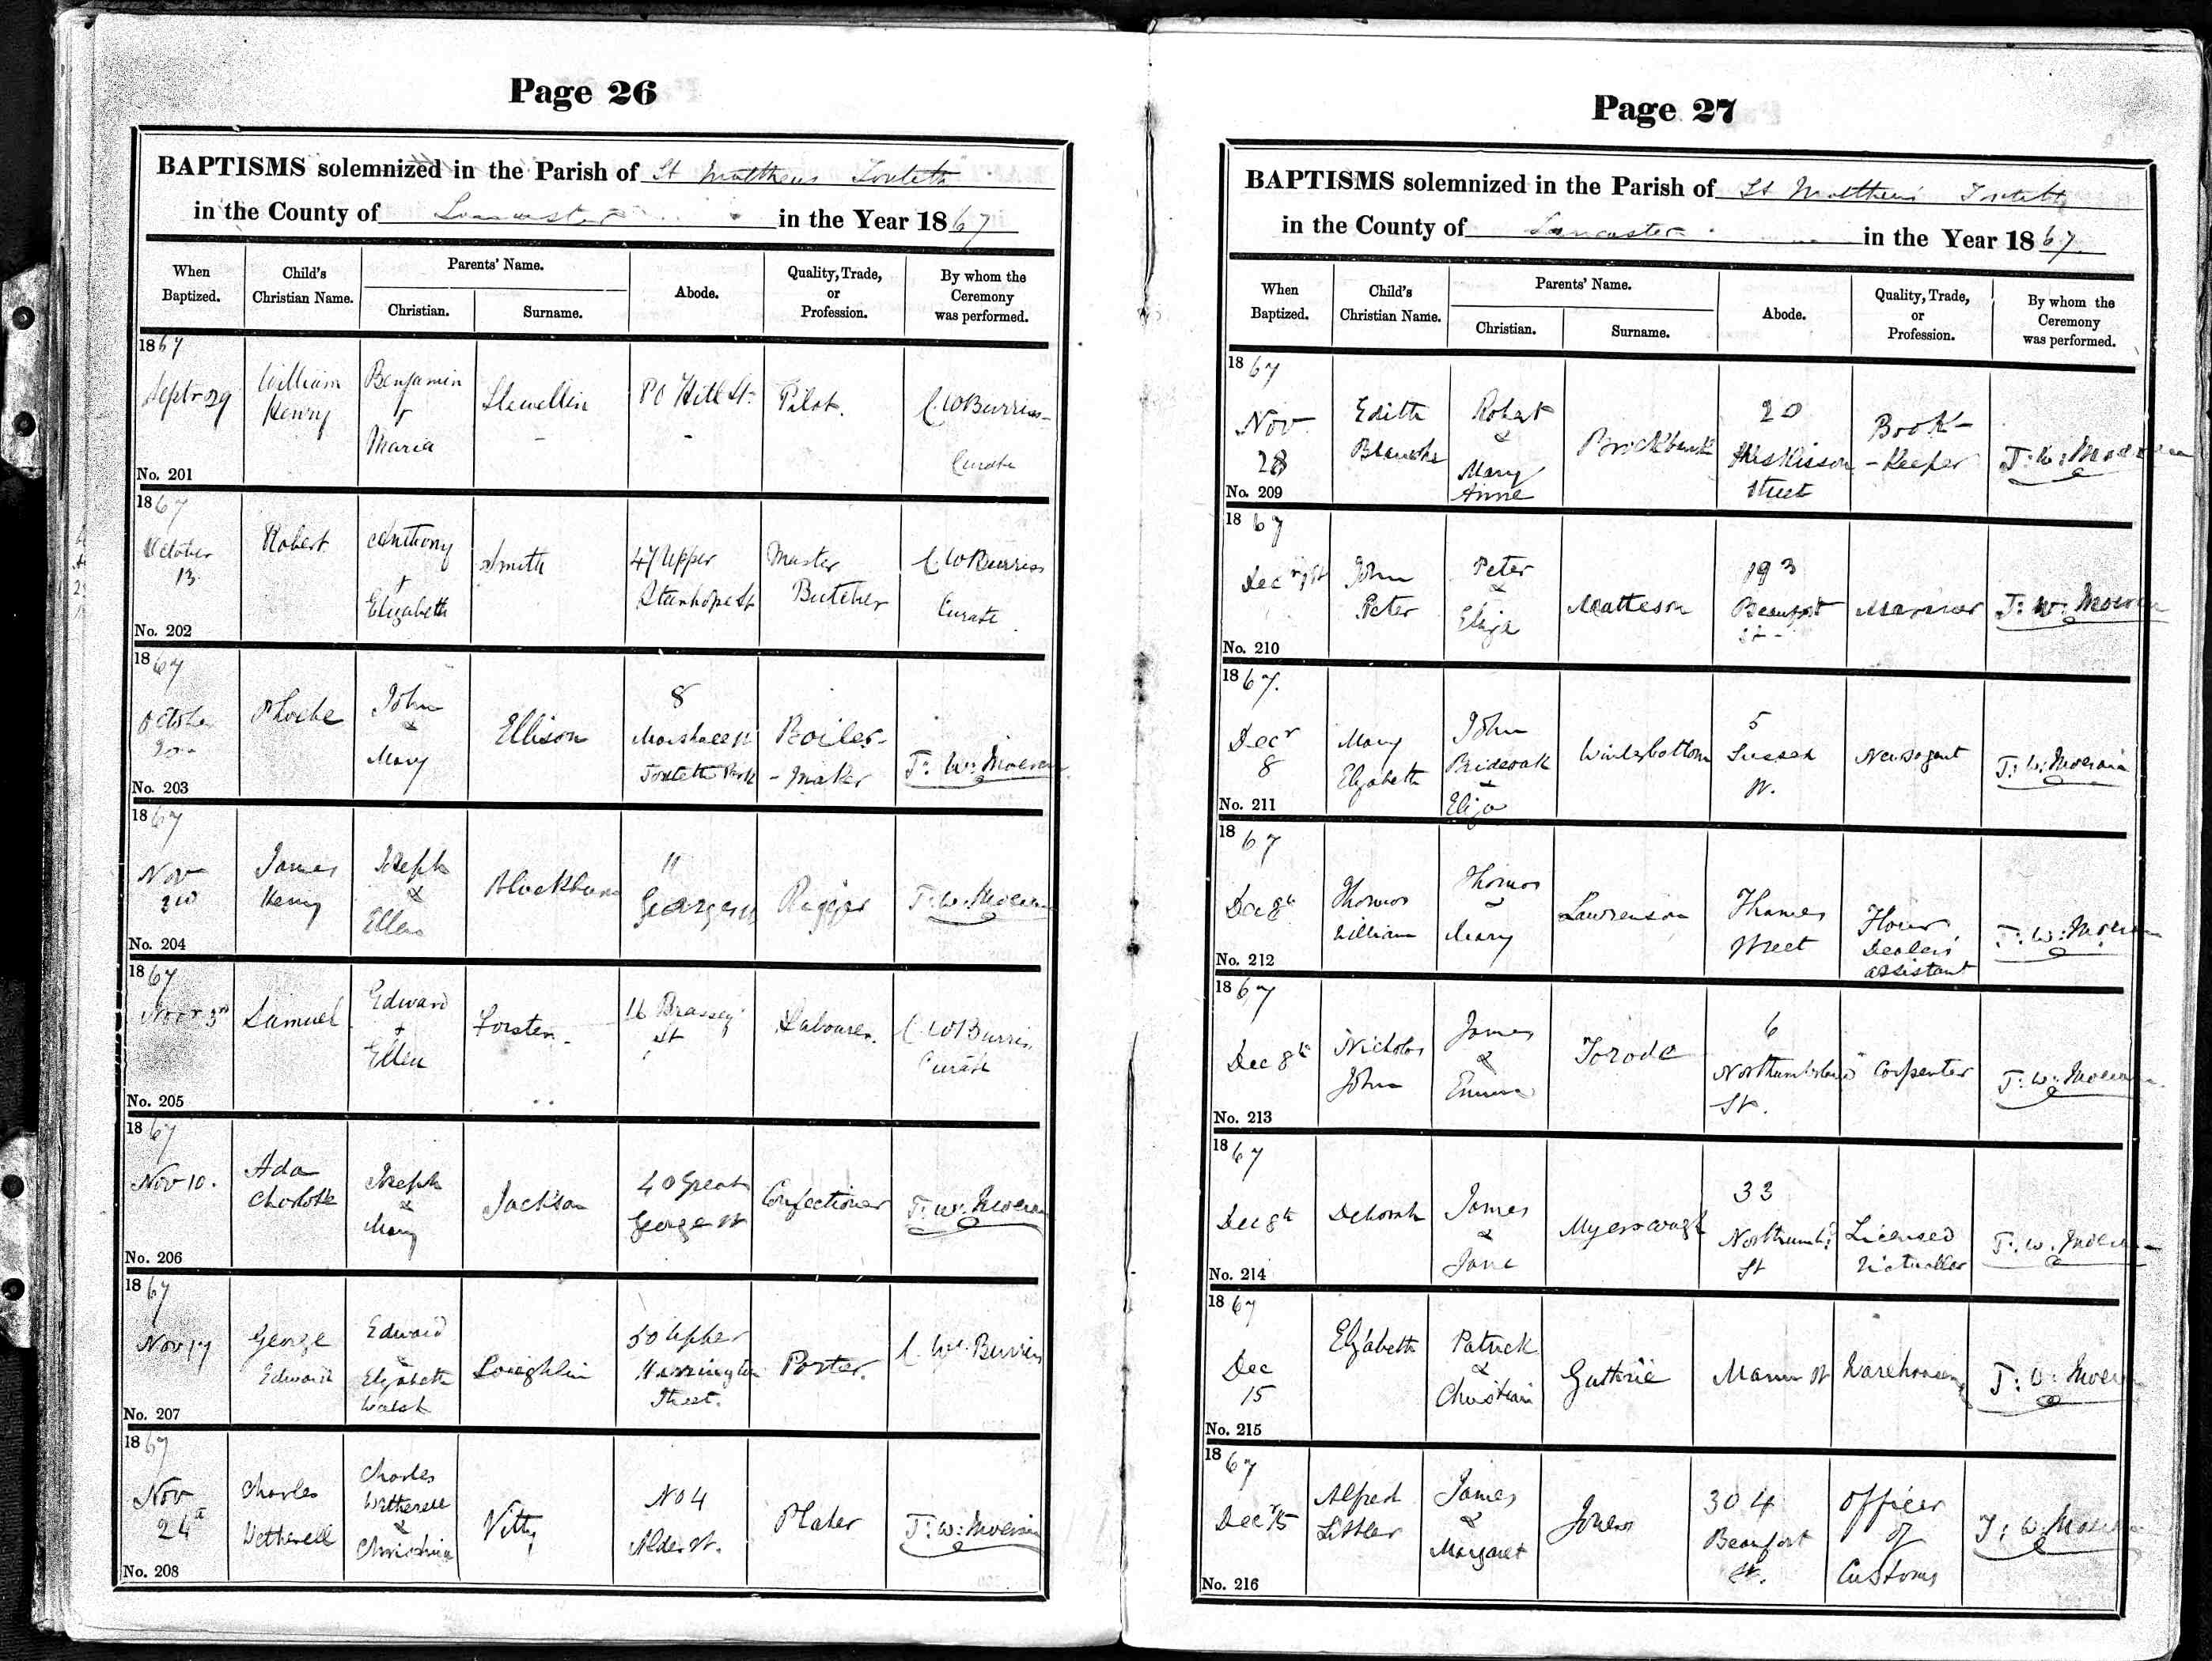 Page 26
BAPTISMS solemnized in the Parish of St Matthews Toxteth
in the County of Lancaster in the Year 1867
When Baptized. Child's Christian Name. Parents' Name. Christian. Surname. Abode. Quality, Trade, or Profession. By whom the Ceremony was performed.
1867
Septr 29
William
Henry
Benjamin
&
Maria
Llewellin
80 Hill St.
Pilot.
C. W Burriss
Curate
No. 201
1867
October
13
Robert
Anthony
+
Elizabeth
Smith
47 Upper
Stanhope St
Master
Butcher
C. W Burriss
Curate
No. 202
1867
October
Phoebe
John
&
Mary
Ellison
8
Marshall St
Toxteth Park
Boiler-
-maker
T. W: Moeran
No. 203
1867
Nov
3rd
James
Henry
Joseph
&
Ellen
Blackburn
11
George St
Rigger
T. W: Moeran
No. 204
1867
Novr 3rd
Samuel
Edward
+
Ellen
Forster.
16 Brassey
St
Labourer.
C. W Burriss
Curate
No. 205
1867
Nov 10.
Ada
Charlotte
Joseph
&
Mary
Jackson
40 Great
George St
Confectioner
T: W: Moeran
No. 206
1867
Nov 17
George
Edward
Edward
&
Elizabeth
Walsh
Loughlin
50 Upper
Harrington
Street.
Porter.
C. W. Burriss
No. 207
1867
Nov
24th
Charles
Wetherell
Charles
Wetherell
&
Christina
Vitty
No 4
Alder St.
Plater
T: W: Moeran
No. 208
Page 27
BAPTISMS solemnized in the Parish of St Matthews Toxteth
in the County of Lancaster in the Year 1867.
When Baptized. Child's Christian Name. Parents' Name. Christian. Surname. Abode. Quality, Trade, or Profession. By whom the Ceremony was performed.
1867
Nov
28
Edith
Blanche
Robert
&
Mary
Anne
Brockbank
20
Huskisson
Street
Book-
-Keeper
T: W: Moeran
No. 209
1867
Decr 1st
John
Peter
Peter
&
Eliza
Matteson
193
Beaufort
St
Mariner
T: W: Moeran
No. 210
1867.
Decr
8
Mary
Elizabeth
John
Brideoak
&
Eliza
Winterbottom
5
Sussex
St.
Newsagent
T: W: Moeran
No. 211
1867
Dec 8th
Thomas
William
Thomas
&
Mary
Lawrenson
Thames
Street
Flour
Dealers
assistant
T: W: Moeran
No. 212
1867
Dec 8th
Nicholas
John
James
&
Emma
Torode
6
Northumberland
St.
Carpenter
T: W: Moeran
No. 213
1867
Dec 8th
Deborah
James
&
Jane
Myerscough
33
Northumbd
St
Licensed
Victualler
T: W: Moeran
No. 214
1867
Dec
15
Elizabeth
Patrick
&
Christian
Guthrie
Mann St
Warehouseman
T: W: Moeran
No. 215
1867
Decr 15
Alfred
Littler
James
&
Margaret
Jones
304
Beaufort
St.
Officer
of
Customs
T: W: Moeran
No. 216